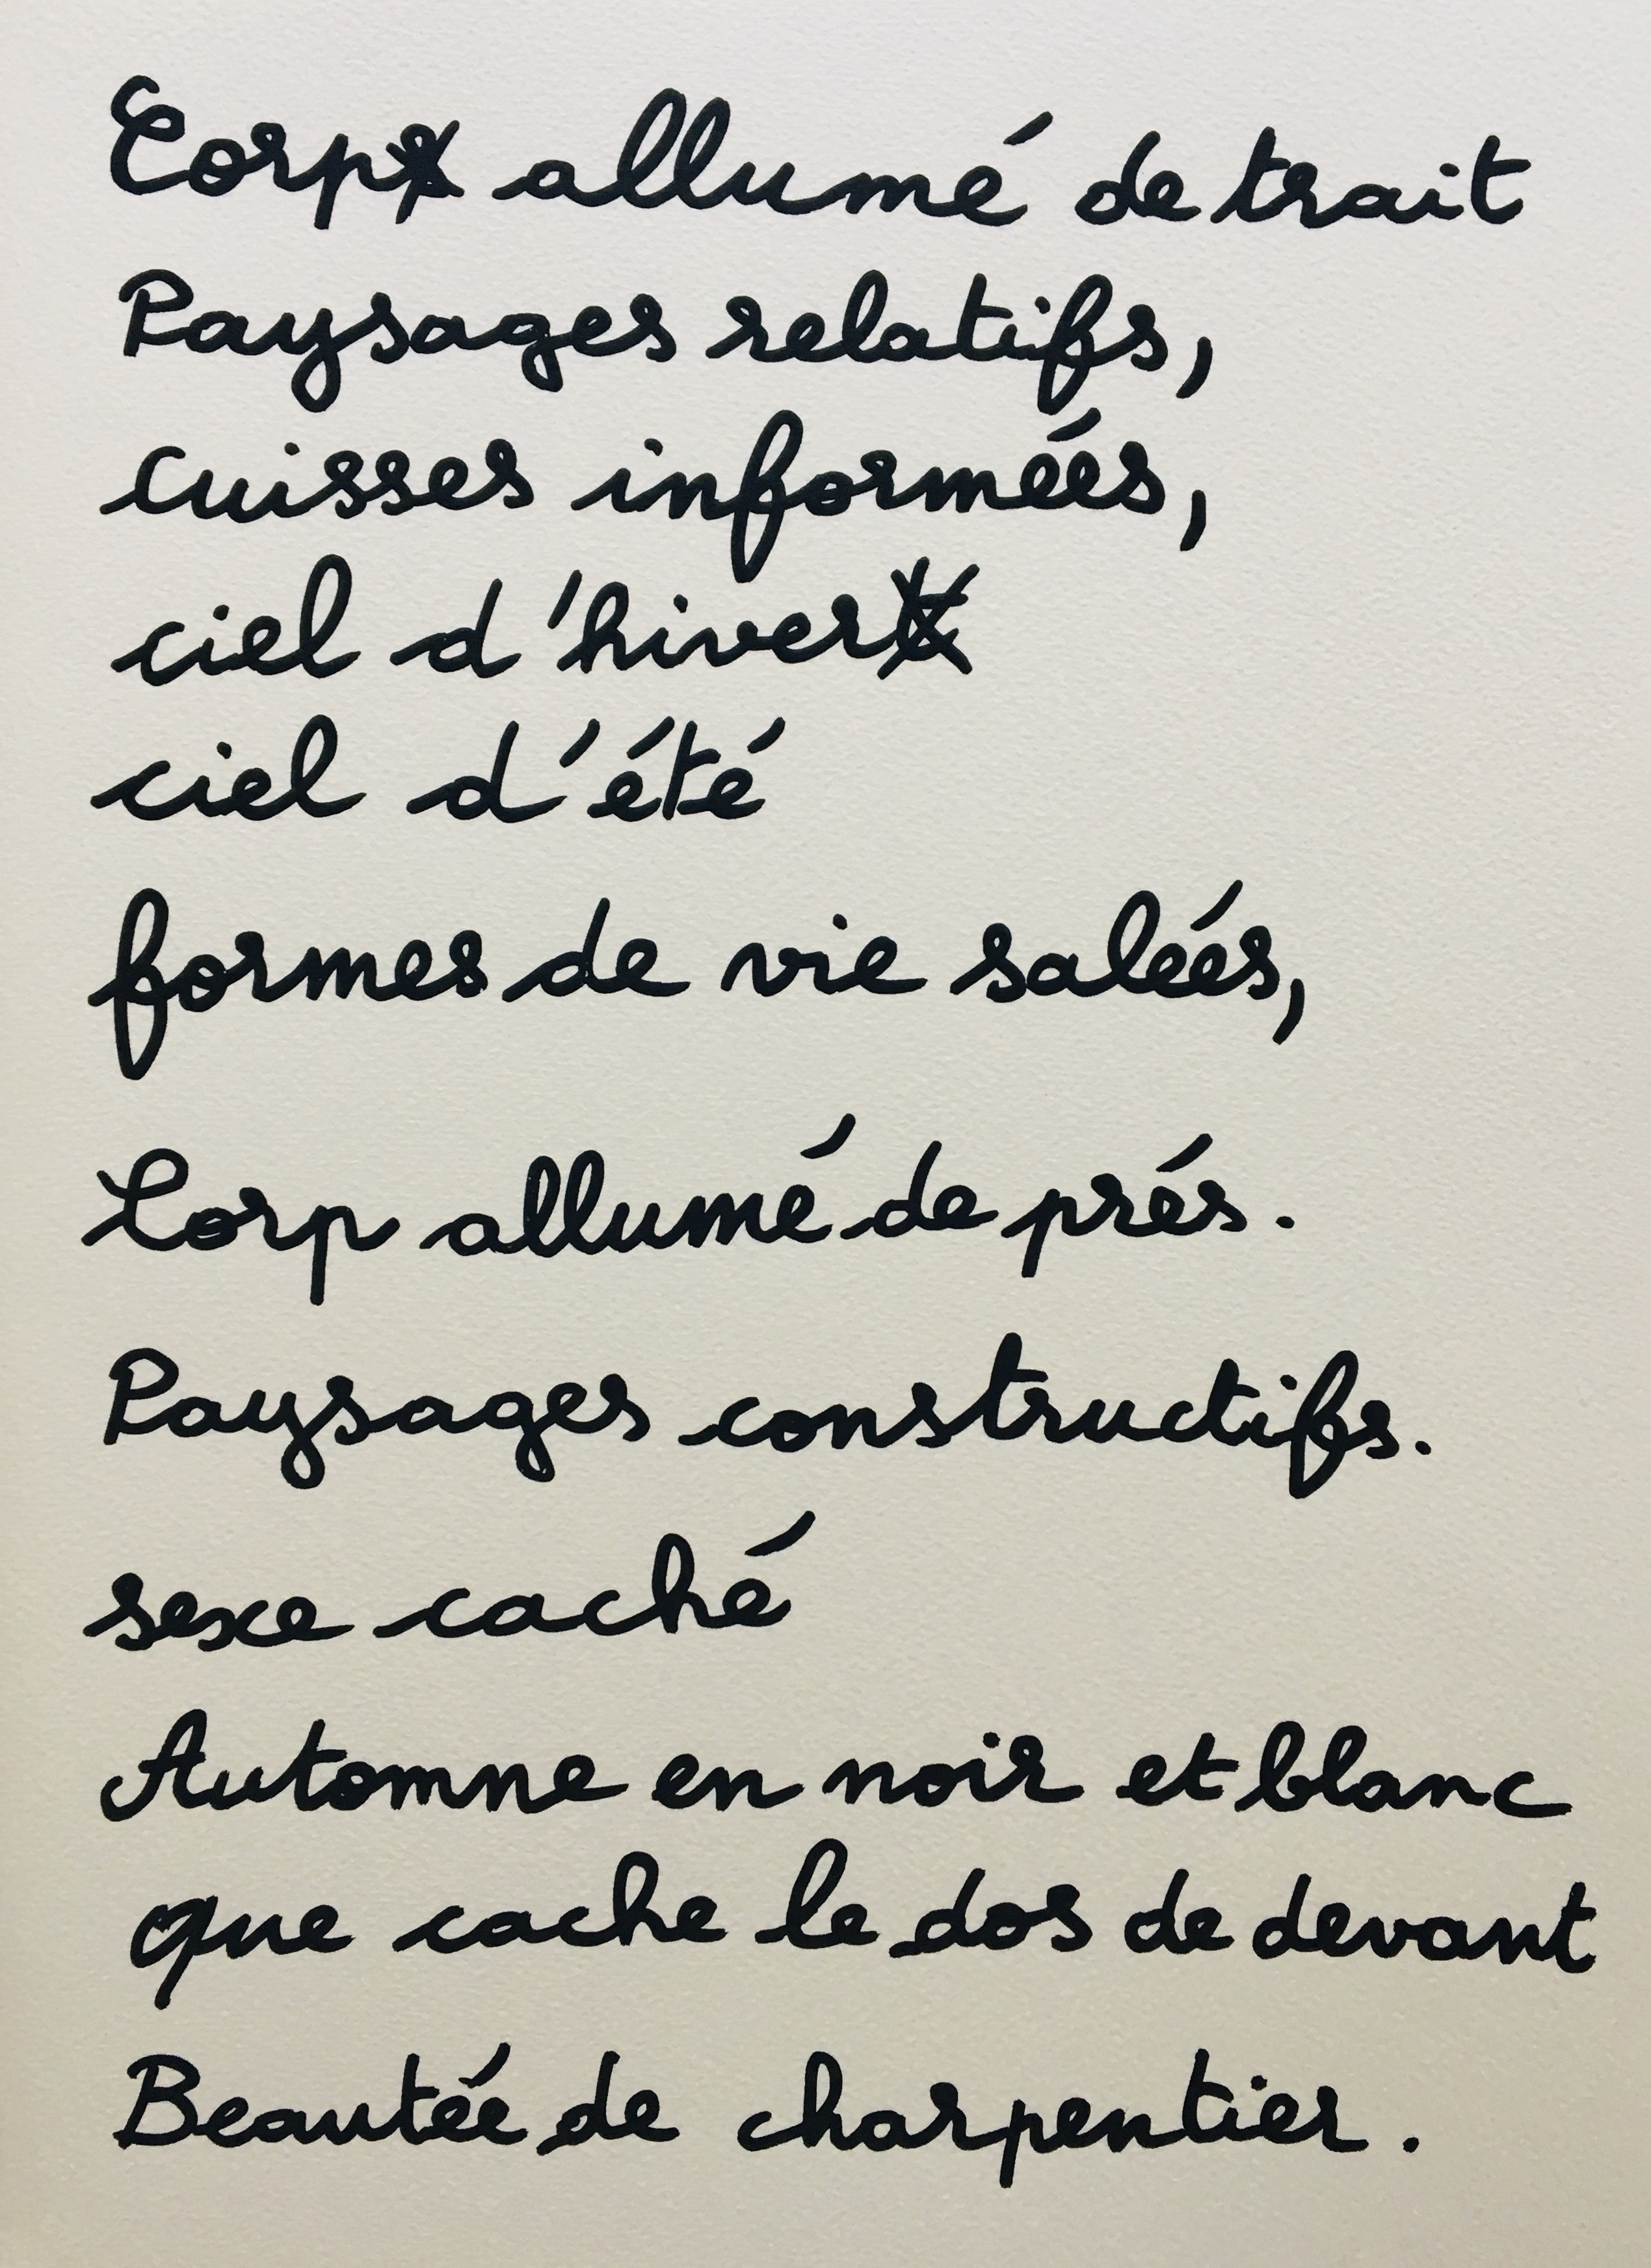 Corp allumé de trait
Paysages relatifs,
cuisses informées,
ciel d'hiver
ciel d'été
formes de vie salées,
Corp allumé de prés.
Paysages constructifs.
sexe caché
Automne en noir et blanc
que cache le dos de devant
Beautée de charpentier.